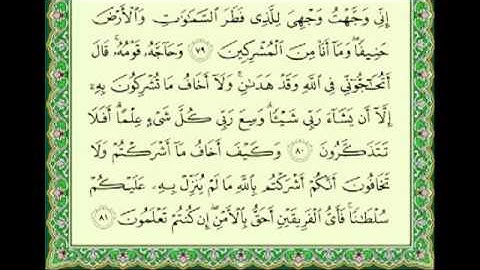 إِنِّى وَجَّهْتُ وَجْهِىَ لِلَّذِى فَطَرَ ٱلسَّمَٰوَٰتِ وَٱلْأَرْضَ
حَنِيفًا ۖ وَمَآ أَنَا۠ مِنَ ٱلْمُشْرِكِينَ ٧٩ وَحَآجَّهُۥ قَوْمُهُۥ ۚ قَالَ
أَتُحَٰٓجُّوٓنِّى فِى ٱللَّهِ وَقَدْ هَدَىٰنِ ۚ وَلَآ أَخَافُ مَا تُشْرِكُونَ بِهِۦٓ
إِلَّآ أَن يَشَآءَ رَبِّى شَيْـًٔا ۗ وَسِعَ رَبِّى كُلَّ شَىْءٍ عِلْمًا ۗ أَفَلَا
تَتَذَكَّرُونَ ٨٠ وَكَيْفَ أَخَافُ مَآ أَشْرَكْتُمْ وَلَا
تَخَافُونَ أَنَّكُمْ أَشْرَكْتُم بِٱللَّهِ مَا لَمْ يُنَزِّلْ بِهِۦ عَلَيْكُمْ
سُلْطَٰنًا ۚ فَأَىُّ ٱلْفَرِيقَيْنِ أَحَقُّ بِٱلْأَمْنِ ۖ إِن كُنتُمْ تَعْلَمُونَ ٨١